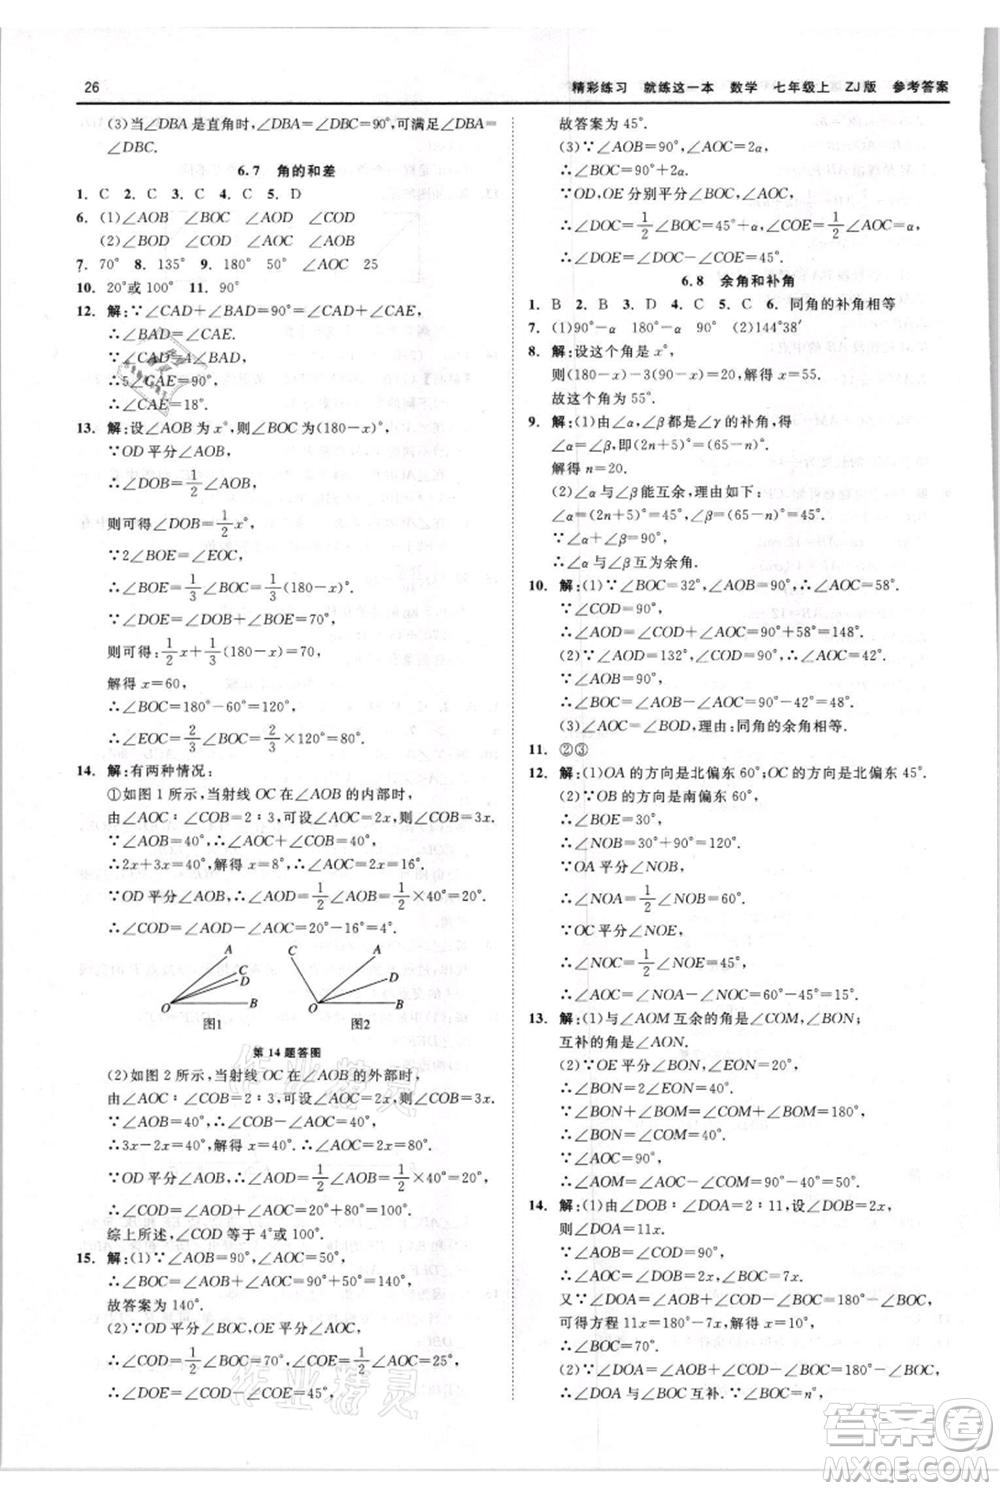 26
精彩练习 就练这一本 数学 七年级上 ZJ版 参考答案
(3)当∠DBA是直角时,∠DBA=∠DBC=90°,可满足∠DBA=
∠DBC.
6.7 角的和差
1. C 2. C 3. C 4. C 5. D
6. (1)∠AOB ∠BOC ∠AOD ∠COD
(2)∠BOD ∠COD ∠AOC ∠AOB
7. 70° 8. 135° 9. 180° 50° ∠AOC 25
10. 20°或100° 11. 90°
12. 解:∵∠CAD+∠BAD=90°=∠CAD+∠CAE,
∴∠BAD=∠CAE.
∵∠CAD=4∠BAD,
∴5∠CAE=90°,
∴∠CAE=18°.
13. 解:设∠AOB为x°,则∠BOC=(180-x)°.
∵OD平分∠AOB,
∴∠DOB=1/2∠AOB,
则可得∠DOB=1/2x°.
∵2∠BOE=∠EOC,
∴∠BOE=1/3∠BOC=1/3(180-x)°.
∵∠DOE=∠DOB+∠BOE=70°,
则可得:1/2x+1/3(180-x)=70,
解得x=60,
∴∠BOC=180°-60°=120°,
∴∠EOC=2/3∠BOC=2/3×120°=80°.
14. 解:有两种情况:
①如图1所示,当射线OC在∠AOB的内部时,
由∠AOC∶∠COB=2∶3,可设∠AOC=2x,则∠COB=3x.
∵∠AOB=40°,∠AOC+∠COB=∠AOB=40°,
∴2x+3x=40°,解得x=8°,∴∠AOC=2x=16°.
∵OD平分∠AOB,∴∠AOD=1/2∠AOB=1/2×40°=20°,
∴∠COD=∠AOD-∠AOC=20°-16°=4°.
A
C
D
O
B
图1
C
A
D
O
B
图2
第14题答图
(2)如图2所示,当射线OC在∠AOB的外部时,
由∠AOC∶∠COB=2∶3,可设∠AOC=2x,则∠COB=3x.
∵∠AOB=∠COB-∠AOC,∠AOB=40°,
∴3x-2x=40°,解得x=40°,∴∠AOC=2x=80°.
∵OD平分∠AOB,∴∠AOD=1/2∠AOB=1/2×40°=20°,
∴∠COD=∠AOC+∠AOD=20°+80°=100°.
综上所述,∠COD等于4°或100°.
15. 解:(1)∵∠AOB=90°,∠AOC=50°,
∴∠BOC=∠AOB+∠AOC=90°+50°=140°.
故答案为140°.
(2)∵OD平分∠BOC,OE平分∠AOC,
∴∠COD=1/2∠BOC=70°,∠COE=1/2∠AOC=25°,
∴∠DOE=∠COD-∠COE=45°,
故答案为45°.
(3)∵∠AOB=90°,∠AOC=2α,
∴∠BOC=90°+2α.
∵OD,OE分别平分∠BOC,∠AOC,
∴∠DOC=1/2∠BOC=45°+α,∠COE=1/2∠AOC=α,
∴∠DOE=∠DOC-∠COE=45°.
6.8 余角和补角
1. B 2. B 3. D 4. C 5. C 6. 同角的补角相等
7. (1)90°-α 180°-α (2)144°38′
8. 解:设这个角是x°,
则(180-x)-3(90-x)=20,解得x=55.
故这个角为55°.
9. 解:(1)由∠α,∠β都是∠γ的补角,得
∠α=∠β,即(2n+5)°=(65-n)°.
解得n=20.
(2)∠α与∠β能互余,理由如下:
∵∠α=(2n+5)°,∠β=(65-n)°,
∴∠α+∠β=90°,
∴∠α与∠β互为余角.
10. 解:(1)∵∠BOC=32°,∠AOB=90°,∴∠AOC=58°.
∵∠COD=90°,
∴∠AOD=∠COD+∠AOC=90°+58°=148°.
(2)∵∠AOD=132°,∠COD=90°,∴∠AOC=42°.
∵∠AOB=90°,
∴∠BOC=∠AOB-∠AOC=90°-42°=48°.
(3)∠AOC=∠BOD,理由:同角的余角相等.
11. ②③
12. 解:(1)OA的方向是北偏东60°;OC的方向是北偏东45°.
(2)∵OB的方向是南偏东60°,
∴∠BOE=30°,
∴∠NOB=30°+90°=120°.
∵OA平分∠NOB,
∴∠NOA=1/2∠NOB=60°.
∵OC平分∠NOE,
∴∠NOC=1/2∠NOE=45°,
∴∠AOC=∠NOA-∠NOC=60°-45°=15°.
13. 解:(1)与∠AOM互余的角是∠COM,∠BOM;
互补的角是∠AON.
(2)∵∠BON=∠BOE=50°,
∴∠BON+∠BOM=90°,∠BOM+∠COM=90°,
∴∠BON=∠COM=40°,
∴∠AOC=90°,
∴∠AOM=90°-40°=50°.
14. 解:(1)由∠DOB∶∠DOA=2∶11,设∠DOB=2x,
则∠DOA=11x.
∵∠AOB=∠COD,
∴∠AOC=∠DOB=2x,∠BOC=7x.
又∵∠DOA=∠AOB+∠COD-∠BOC=180°-∠BOC,
可得方程11x=180°-7x,解得x=10°,
∴∠BOC=70°.
(2)∵∠AOD=∠AOB+∠COD-∠BOC=180°-∠BOC,
∴∠AOD与∠BOC互补.∵∠AOD+∠BOC=180°,
作业精灵
作业精灵
答案圈
MXQE.COM